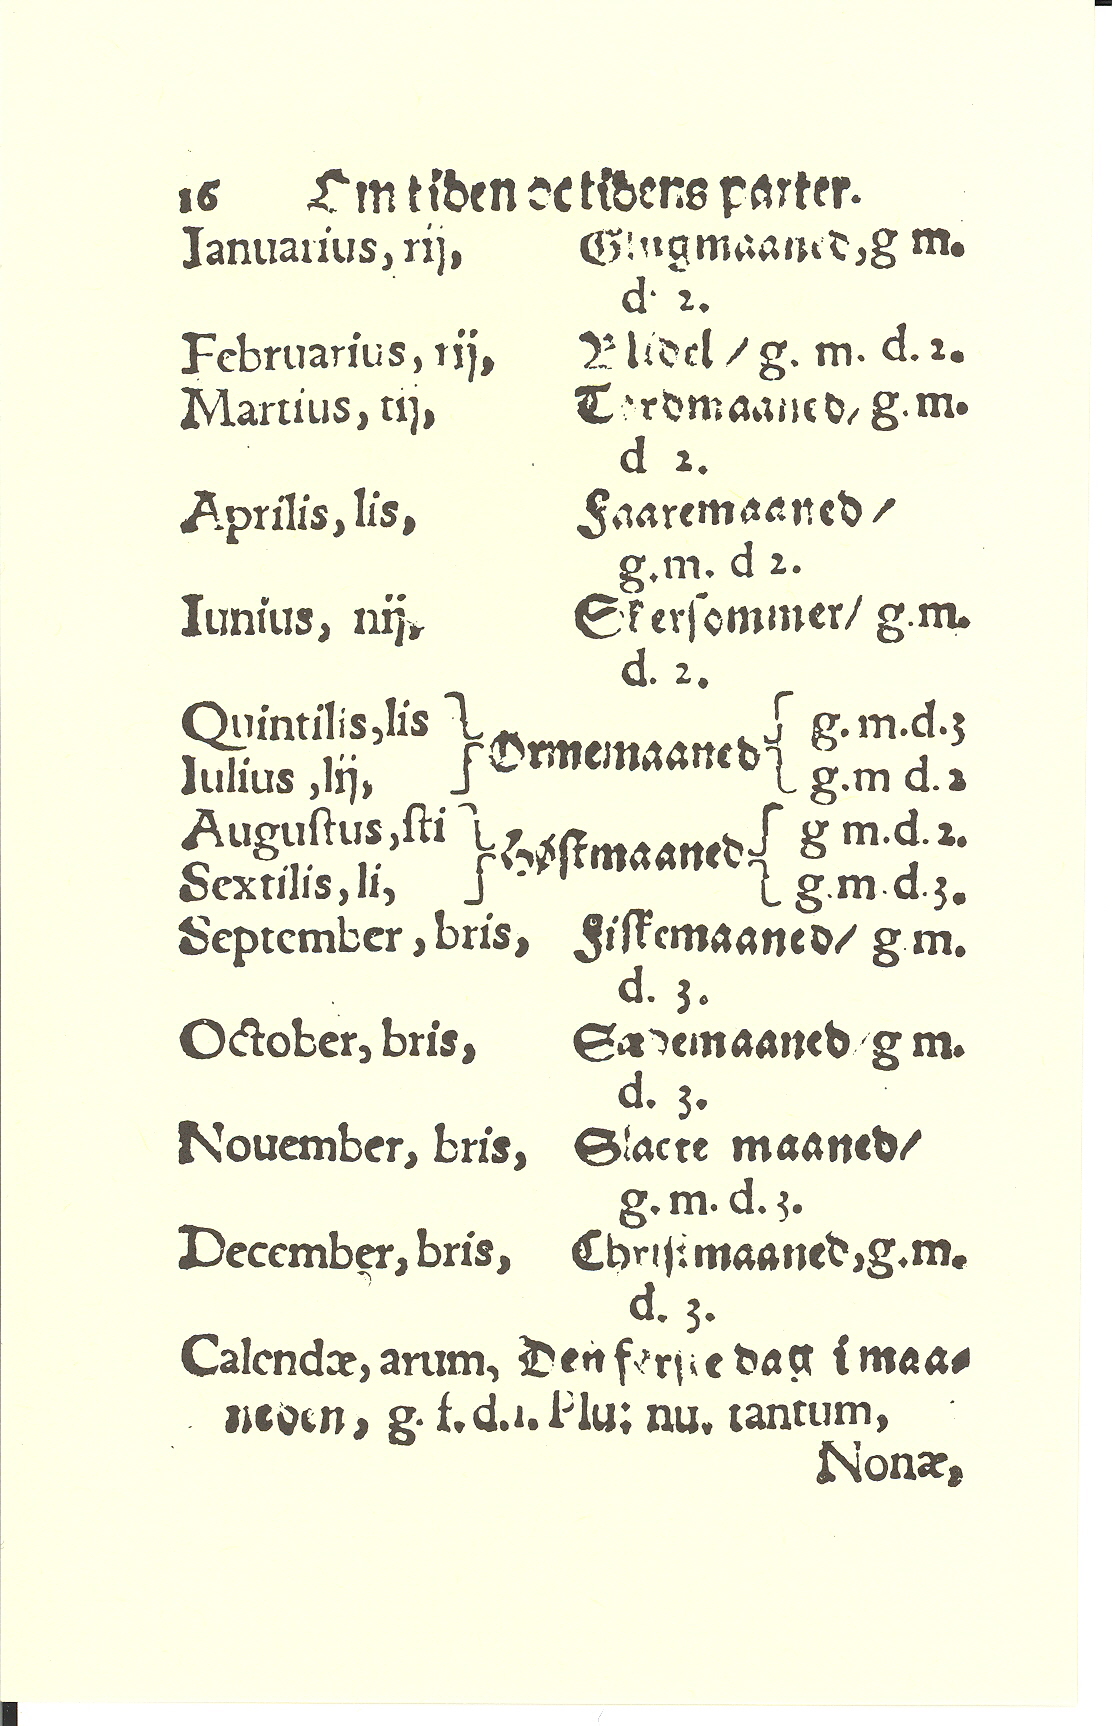 16 Om tiden oc tidens parter.
Ianuarius, rij, Glugmaaned, g m.
d. 2.
Februarius, rij, Blidel / g. m. d. 2.
Martius, tij, Tordmaaned / g. m.
d 2.
Aprilis, lis, Faaremaaned /
g. m. d 2.
Iunius, nij, Skersommer / g. m.
d. 2.
Quintilis, lis g. m. d. 3
Ormemaaned
Iulius, lij, g. m d. 2
Auguſtus, ſti g m. d. 2.
Høſtmaaned
Sextilis, li, g. m. d. 3.
September, bris, Fiſkemaaned / g. m.
d. 3.
October, bris, Sædemaaned / g m.
d. 3.
Nouember, bris, Slacte maaned /
g. m. d. 3.
December, bris, Chriſtmaaned, g. m.
d. 3.
Calendæ, arum, Den førſte dag i maa-
neden, g. f. d. 1. Plu: nu. tantum,
Nonæ,